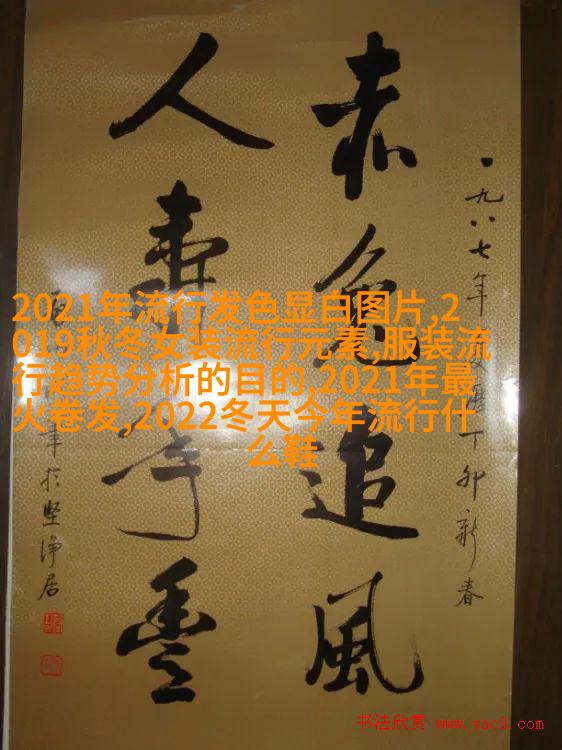 一九八七年
丁卯新春
赤兔追風
人壽年豐
於堅淨居
2021年流行发色显白图片,2
019秋冬女装流行元素,服装流
行趋势分析的目的,2021年最
火卷发,2022冬天今年流行什
么鞋
书法欣赏 www.yac8.com